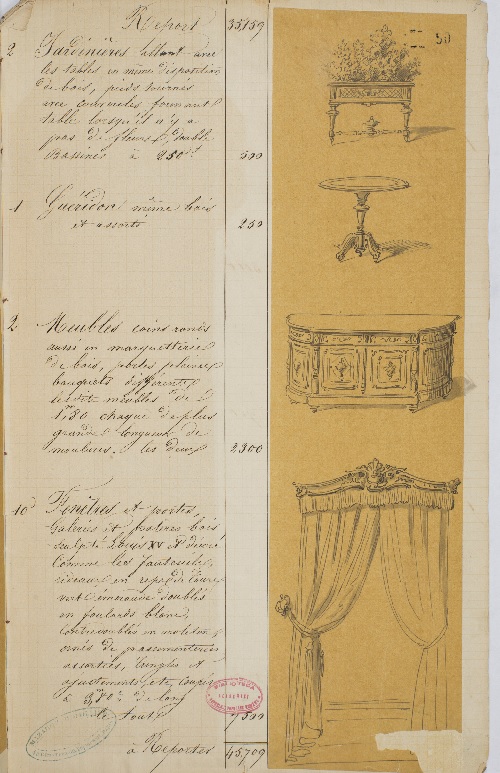 Report 35159
50
2 Jardinières allant avec
les tables en même disposition
de bois, pieds tournés
avec couvercles formant
table lorsqu'il n'y a
pas de fleurs, double
Bassines à 250f 500
1 Guéridon même bois
et assorti 250
2 Meubles coins ronds
aussi en marquetterie
de bois, portes pleines
bouquets différents
meubles de
1780 chaque de plus
grande longueur de
moulures. les deux 2300
10 Fenêtres et portes,
Galeries et bois
sculpté Louis XV et doré
Comme les fauteuils,
rideaux en reps de laine
vert émeraude doublés
en foulards blanc,
molleton
ornés de passementeries
assorties, tringles et
ajustements, etc,
à de long
le tout 7500
à Reporter 45709